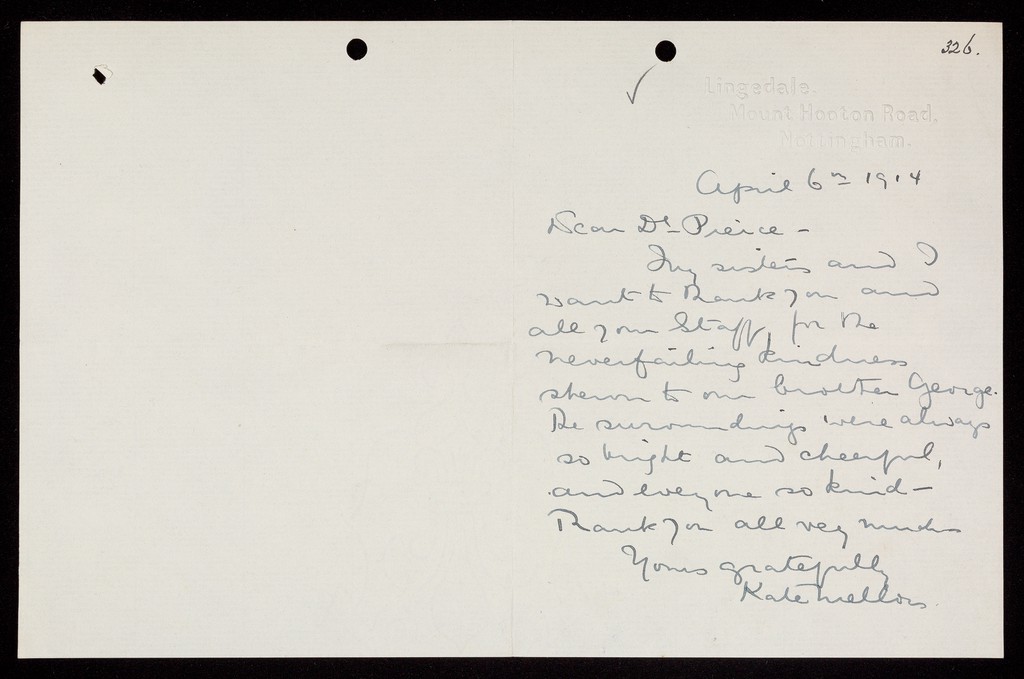 326.
Lingedale.
Mount Hooton Road,
Nottingham.
April 6th 1914
Dear Dr Pierce -
My sisters and I
want to thank you and
all your Staff, for the
neverfailing kindness
shewn to our brother George.
The surroundings were always
so bright and cheerful,
and everyone so kind -
Thank you all very much
Yours gratefully
Kate Mellors.